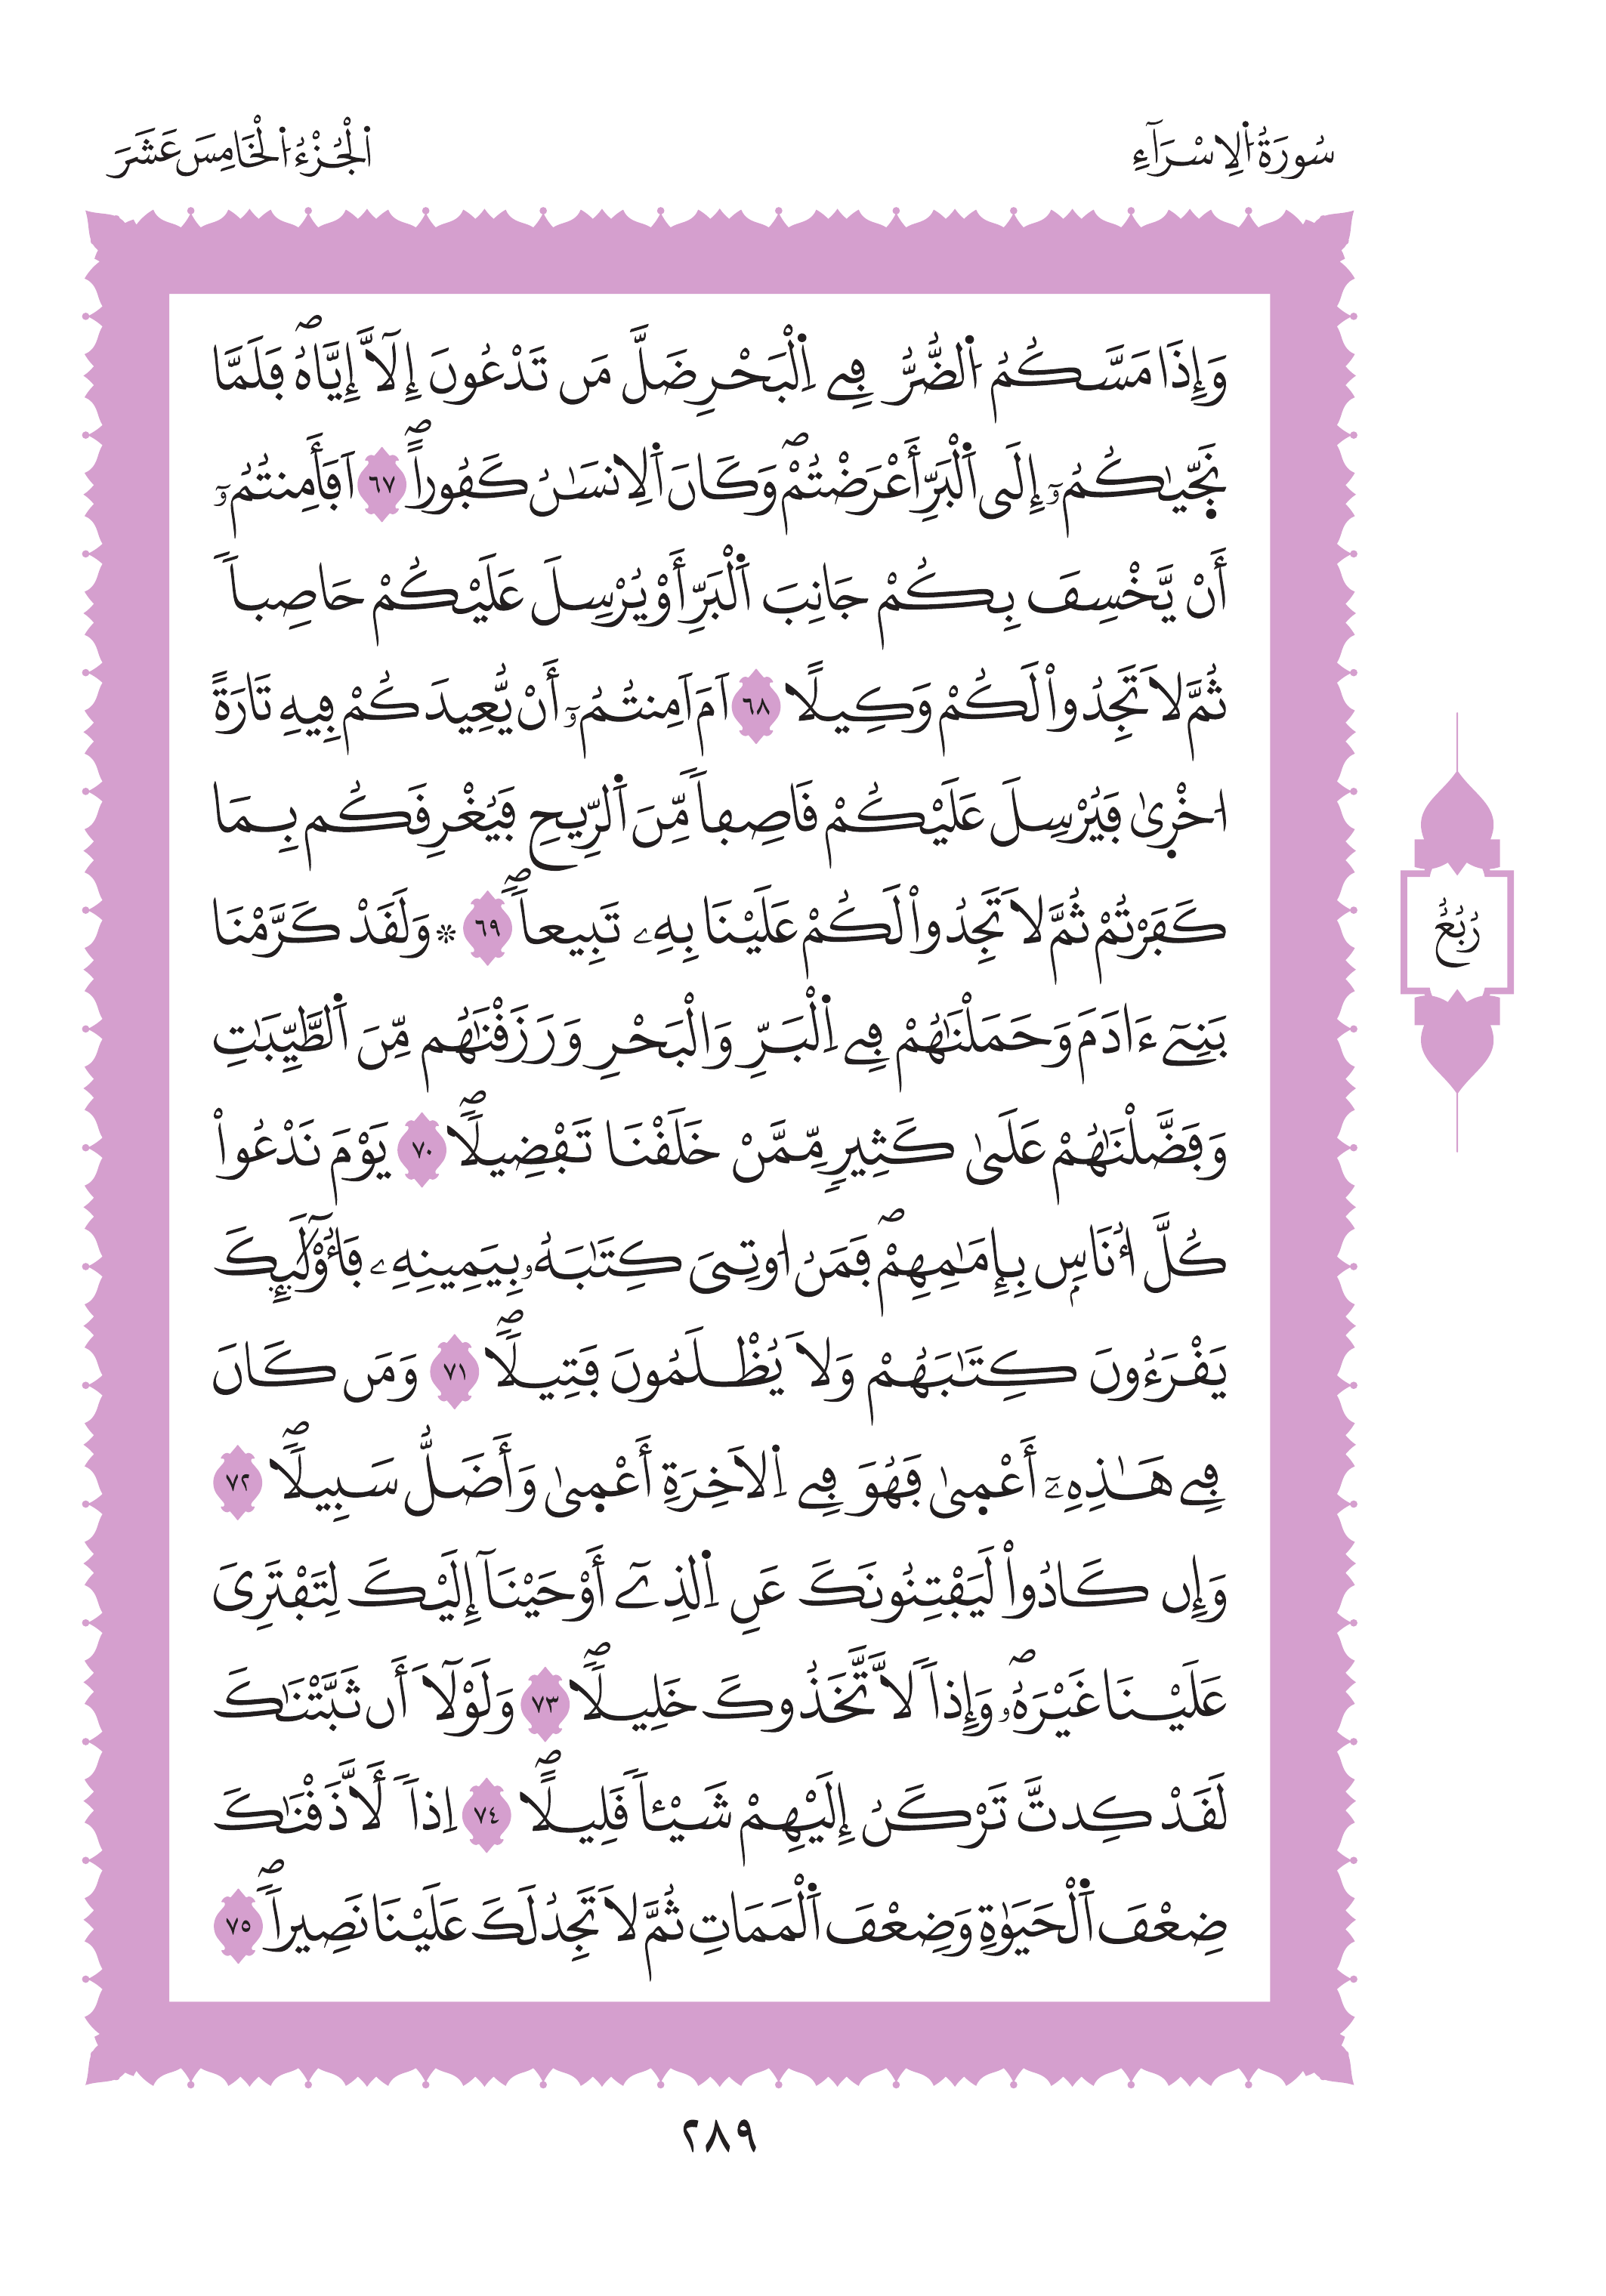 سُورَةُ اُ۬لِاسْرَآءِ
اُ۬لْجُزْءُ اُ۬لْخَامِسَ عَشَرَ
وَإِذَا مَسَّكُمُ اُ۬لضُّرُّ فِے اِ۬لْبَحْرِ ضَلَّ مَن تَدْعُونَ إِلَّآ إِيَّاهُۖ فَلَمَّا
نَجّ۪يٰكُمُۥٓ إِلَى اَ۬لْبَرِّ أَعْرَضْتُمْۖ وَكَانَ اَ۬لِانسَٰنُ كَفُوراًۖ ٦٧ اَفَأَمِنتُمُۥٓ
أَنْ يَّخْسِفَ بِكُمْ جَانِبَ اَ۬لْبَرِّ أَوْ يُرْسِلَ عَلَيْكُمْ حَاصِباٗ
ثُمَّ لَا تَجِدُواْ لَكُمْ وَكِيلًا ٦٨ اَمَ اَمِنتُمُۥٓ أَنْ يُّعِيدَكُمْ فِيهِ تَارَةً
ا۟خْر۪يٰ فَيُرْسِلَ عَلَيْكُمْ قَاصِفاٗ مِّنَ اَ۬لرِّيحِ فَيُغْرِقَكُم بِمَا
كَفَرْتُمْ ثُمَّ لَا تَجِدُواْ لَكُمْ عَلَيْنَا بِهِۦ تَبِيعاٗۖ ٦٩ ۞ وَلَقَدْ كَرَّمْنَا
بَنِےٓ ءَادَمَ وَحَمَلْنَٰهُمْ فِے اِ۬لْبَرِّ وَالْبَحْرِ وَرَزَقْنَٰهُم مِّنَ اَ۬لطَّيِّبَٰتِ
وَفَضَّلْنَٰهُمْ عَلَىٰ كَثِيرٖ مِّمَّنْ خَلَقْنَا تَفْضِيلاٗۖ ٧٠ يَوْمَ نَدْعُواْ
كُلَّ أُنَاسِۢ بِإِمَٰمِهِمْۖ فَمَنُ ا۟وتِيَ كِتَٰبَهُۥ بِيَمِينِهِۦ فَأُوْلَٰٓئِكَ
يَقْرَءُونَ كِتَٰبَهُمْ وَلَا يُظْلَمُونَ فَتِيلاٗۖ ٧١ وَمَن كَانَ
فِے هَٰذِهِۦٓ أَعْم۪يٰ فَهُوَ فِے اِ۬لَاخِرَةِ أَعْم۪يٰ وَأَضَلُّ سَبِيلاٗۖ ٧٢
وَإِن كَادُواْ لَيَفْتِنُونَكَ عَنِ اِ۬لذِےٓ أَوْحَيْنَآ إِلَيْكَ لِتَفْتَرِيَ
عَلَيْنَا غَيْرَهُۥۖ وَإِذاٗ لَّاتَّخَذُوكَ خَلِيلاٗۖ ٧٣ وَلَوْلَآ أَن ثَبَّتْنَٰكَ
لَقَدْ كِدتَّ تَرْكَنُ إِلَيْهِمْ شَيْـٔاٗ قَلِيلاًۖ ٧٤ اِذاٗ لَّأَذَقْنَٰكَ
ضِعْفَ اَ۬لْحَيَوٰةِ وَضِعْفَ اَ۬لْمَمَاتِ ثُمَّ لَا تَجِدُ لَكَ عَلَيْنَا نَصِيراٗۖ ٧٥
رُبُعُ
٢٨٩